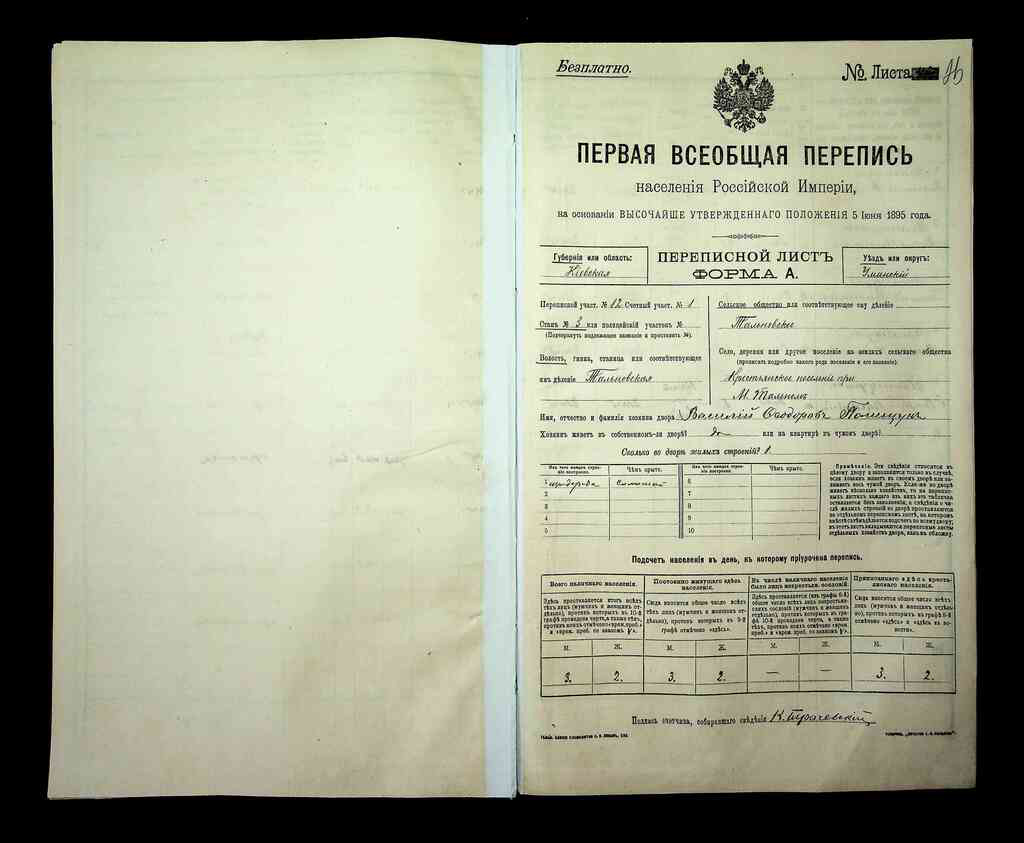 Безплатно.
№ Листа 26
ПЕРВАЯ ВСЕОБЩАЯ ПЕРЕПИСЬ
населенія Россійской Имперіи,
на основаніи ВЫСОЧАЙШЕ УТВЕРЖДЕННАГО ПОЛОЖЕНІЯ 5 Іюня 1895 года.
Губернія или область:
Кіевская
ПЕРЕПИСНОЙ ЛИСТЪ
ФОРМА А.
Уѣздъ или округъ:
Уманскій
Переписной участ. № 12 Счетный участ. № 1
Станъ № 3 или полицейскій участокъ №
(Подчеркнуть надлежащее названіе и проставить №).
Волость, гмина, станица или соотвѣтствующее
имъ дѣленіе Тальновская
Сельское общество или соотвѣтствующее ему дѣленіе
Тальновское
Село, деревня или другое поселеніе на земляхъ сельскаго общества
(прописать подробно какого рода поселеніе и его названіе).
Крестьянское при
М. Тальномъ
Имя, отчество и фамилія хозяина двора Василій Ѳеодоровъ
Хозяинъ живетъ въ собственномъ-ли дворѣ? да или на квартирѣ въ чужомъ дворѣ?
Сколько во дворѣ жилыхъ строеній? 1.
Изъ чего каждое строеніе построено. Чѣмъ крыто. Изъ чего каждое строеніе построено. Чѣмъ крыто.
1 изъ дерева соломой 6
2 7
3 8
4 9
5 10
Примѣчаніе. Эти свѣдѣнія относятся къ
цѣлому двору и заполняются только въ случаѣ,
если хозяинъ живетъ въ своемъ дворѣ или занимаетъ весь чужой дворъ. Если-же во дворѣ
живетъ нѣсколько хозяйствъ, то на переписныхъ листахъ каждаго изъ нихъ эта табличка
оставляется безъ заполненія; а свѣдѣнія о числѣ жилыхъ строеній во дворѣ проставляются
на отдѣльномъ переписномъ листѣ, на которомъ
вмѣстѣ съ тѣмъ дѣлается подсчетъ по всему двору;
въ этотъ листъ вкладываются переписные листы
отдѣльныхъ хозяйствъ двора, какъ въ обложку.
Подсчетъ населенія въ день, къ которому пріурочена перепись.
Всего наличнаго населенія.
Здѣсь проставляется итогъ всѣхъ
тѣхъ лицъ (мужчинъ и женщинъ отдѣльно), противъ которыхъ въ 10-й
графѣ проведена черта, а также тѣхъ,
противъ коихъ отмѣчено «врем. преб.»
и «врем. преб. со знакомъ V».
М. Ж.
3. 2.
Постоянно живущаго здѣсь
населенія.
Сюда вносится общее число всѣхъ
тѣхъ лицъ (мужчинъ и женщинъ отдѣльно), противъ которыхъ въ 9-й
графѣ отмѣчено «здѣсь».
М. Ж.
3. 2.
Въ числѣ наличнаго населенія
было лицъ некрестьян. сословій.
Здѣсь проставляется (изъ графы 6-й)
общее число всѣхъ лицъ некрестьянскихъ сословій (мужчинъ и женщинъ
отдѣльно), противъ которыхъ въ графѣ 10-й проведена черта, а также
тѣхъ, противъ коихъ отмѣчено «врем.
преб.» и «врем. преб. со знакомъ V».
М. Ж.
— —
Приписаннаго здѣсь крестьянскаго населенія.
Сюда вносится общее число всѣхъ
лицъ (мужчинъ и женщинъ отдѣльно), противъ которыхъ въ графѣ 8-й
отмѣчено «здѣсь» и «здѣсь въ волости».
М. Ж.
3. 2.
Подпись счетчика, собиравшаго свѣдѣнія